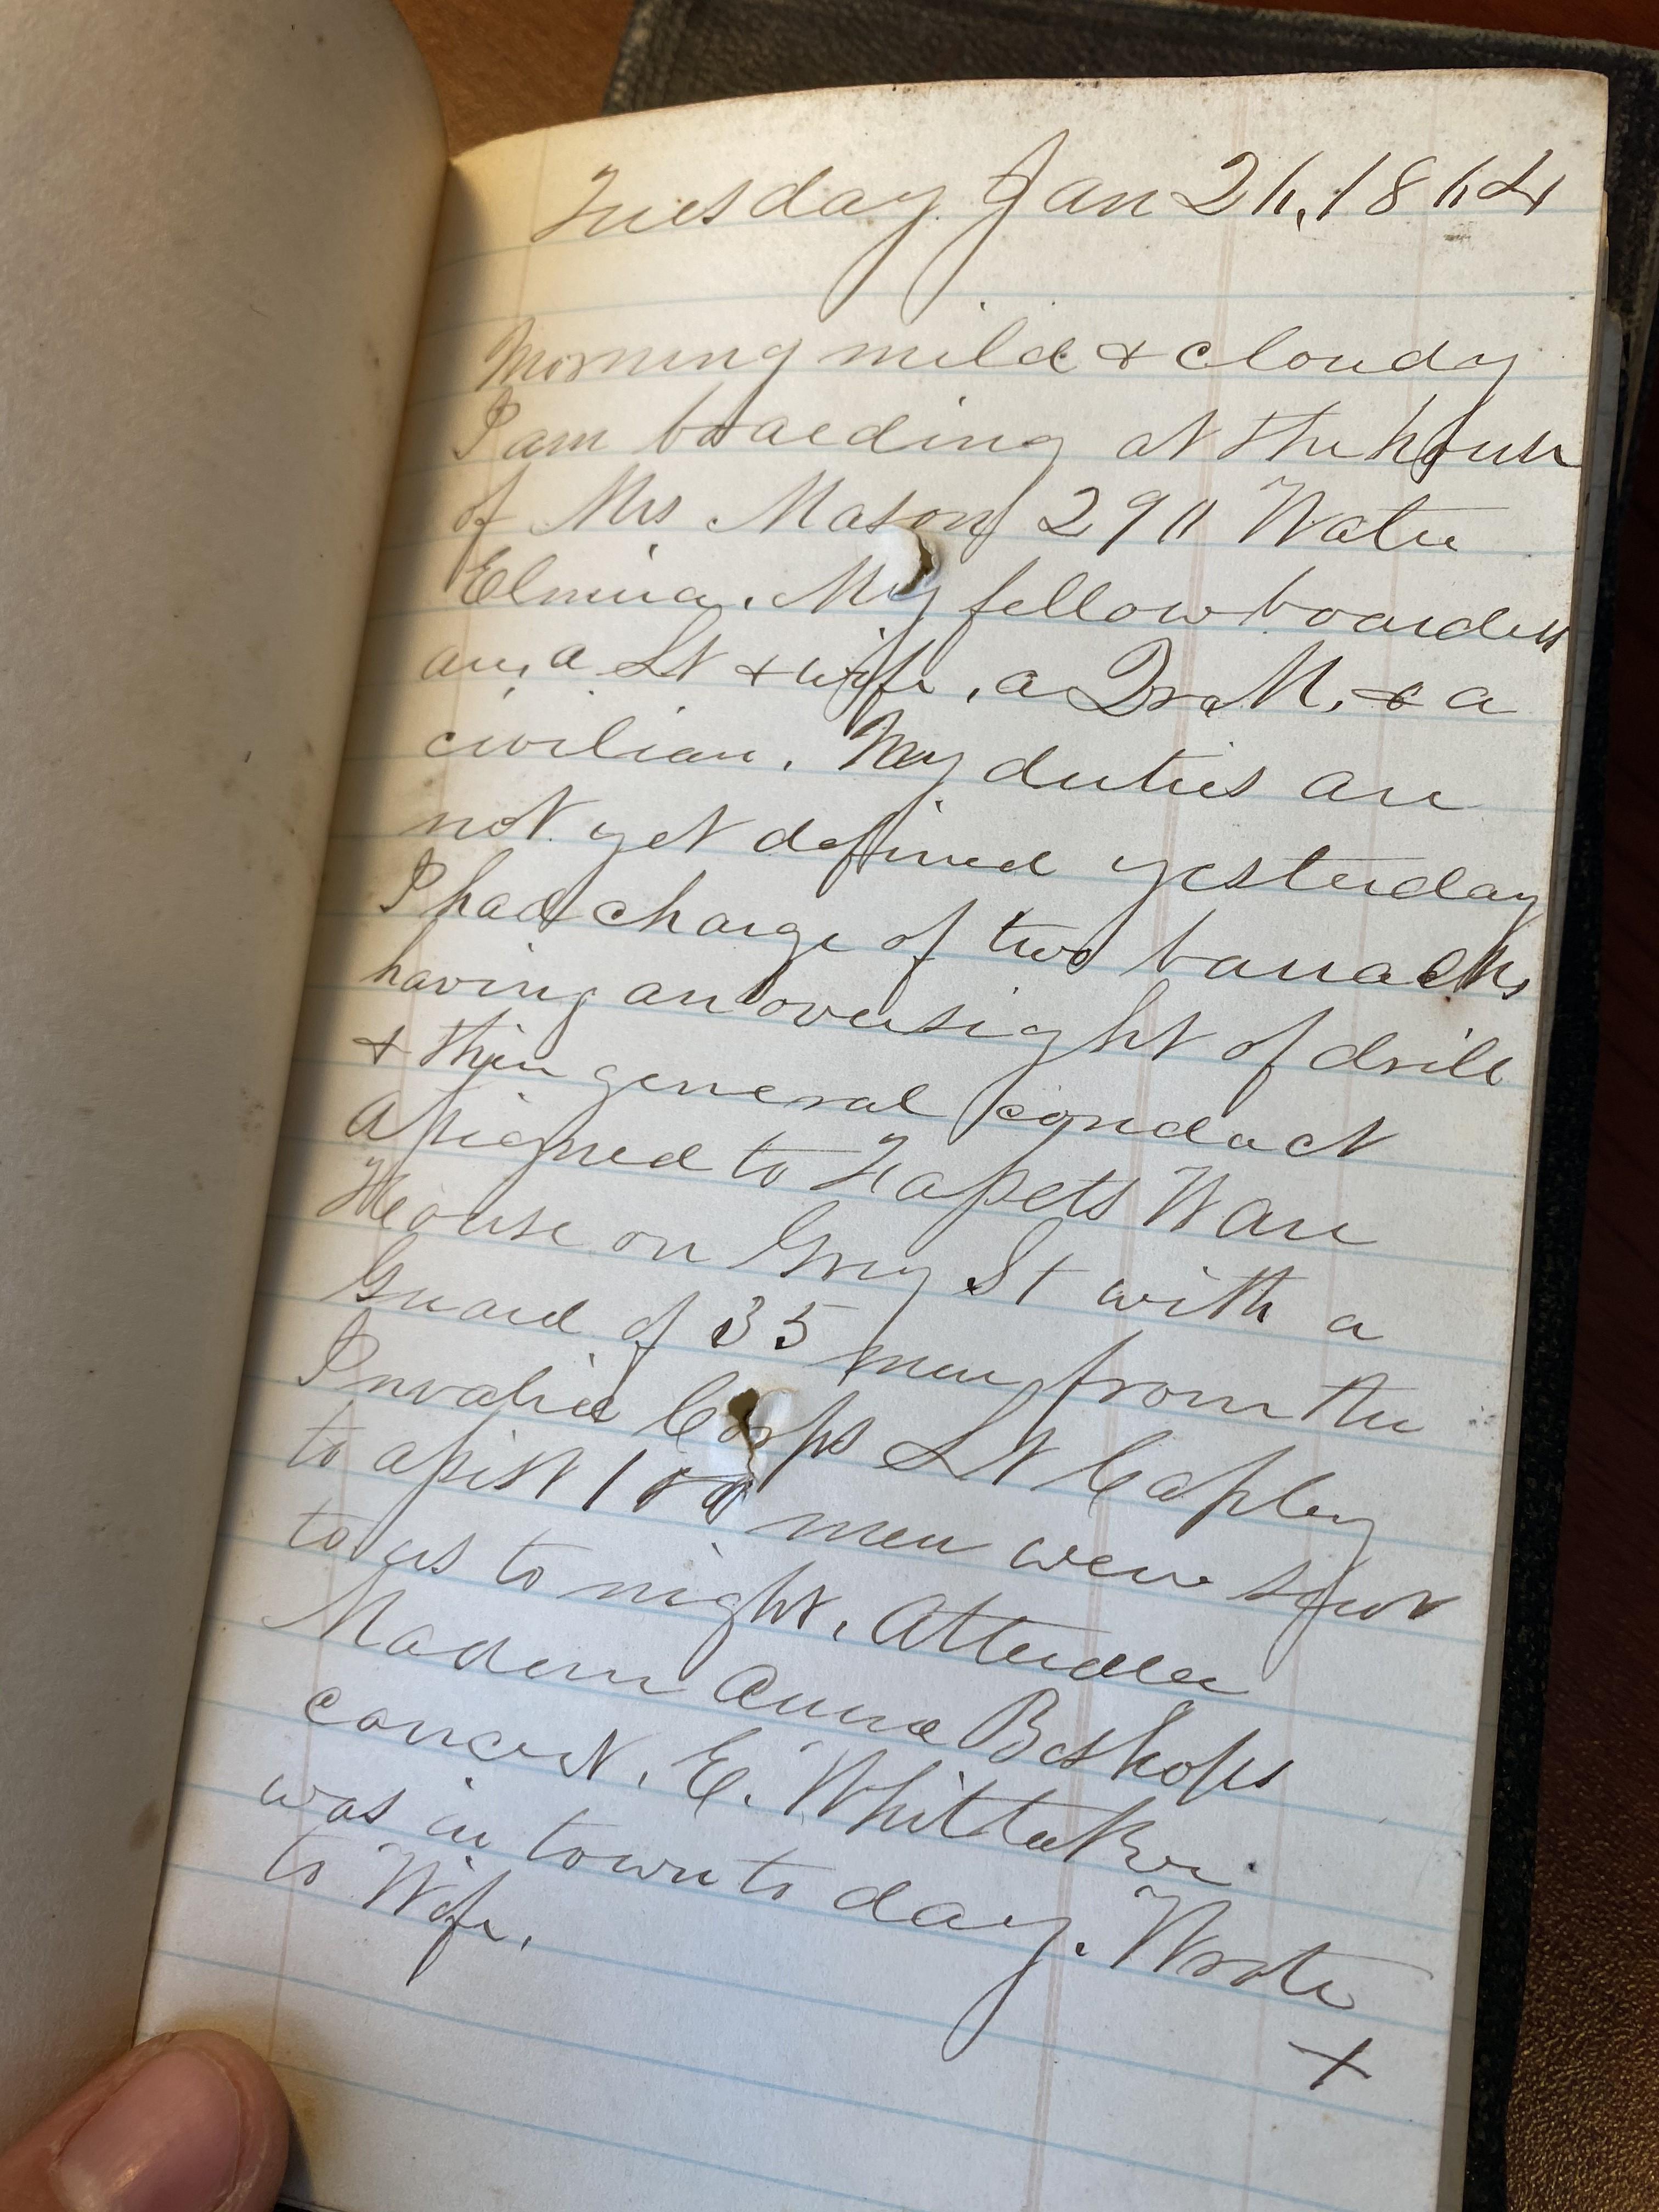 Tuesday Jan 26, 1864
Morning mild & cloudy
I am boarding at the house
of Mrs Mason 290 Water
Elmira. My fellow boarders
are, a Lt & wife, a Qr M, & a
civilian. My duties are
not yet defined yesterday
I had charge of two barracks
having an oversight of drill
& their general conduct
Assigned to Ware
House on Gray St with a
Guard of 35 men from the
Invalid Corps Lt Copley
to assist 100 men were sent
to us to night. Attended
Madam Anna Bishops
concert. E. Whittaker
was in town to day. Wrote
to Wife.
+